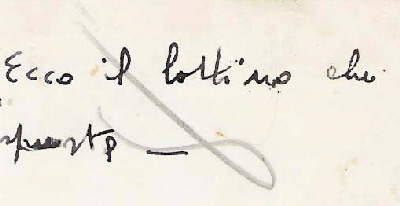 Ecco il lottino che